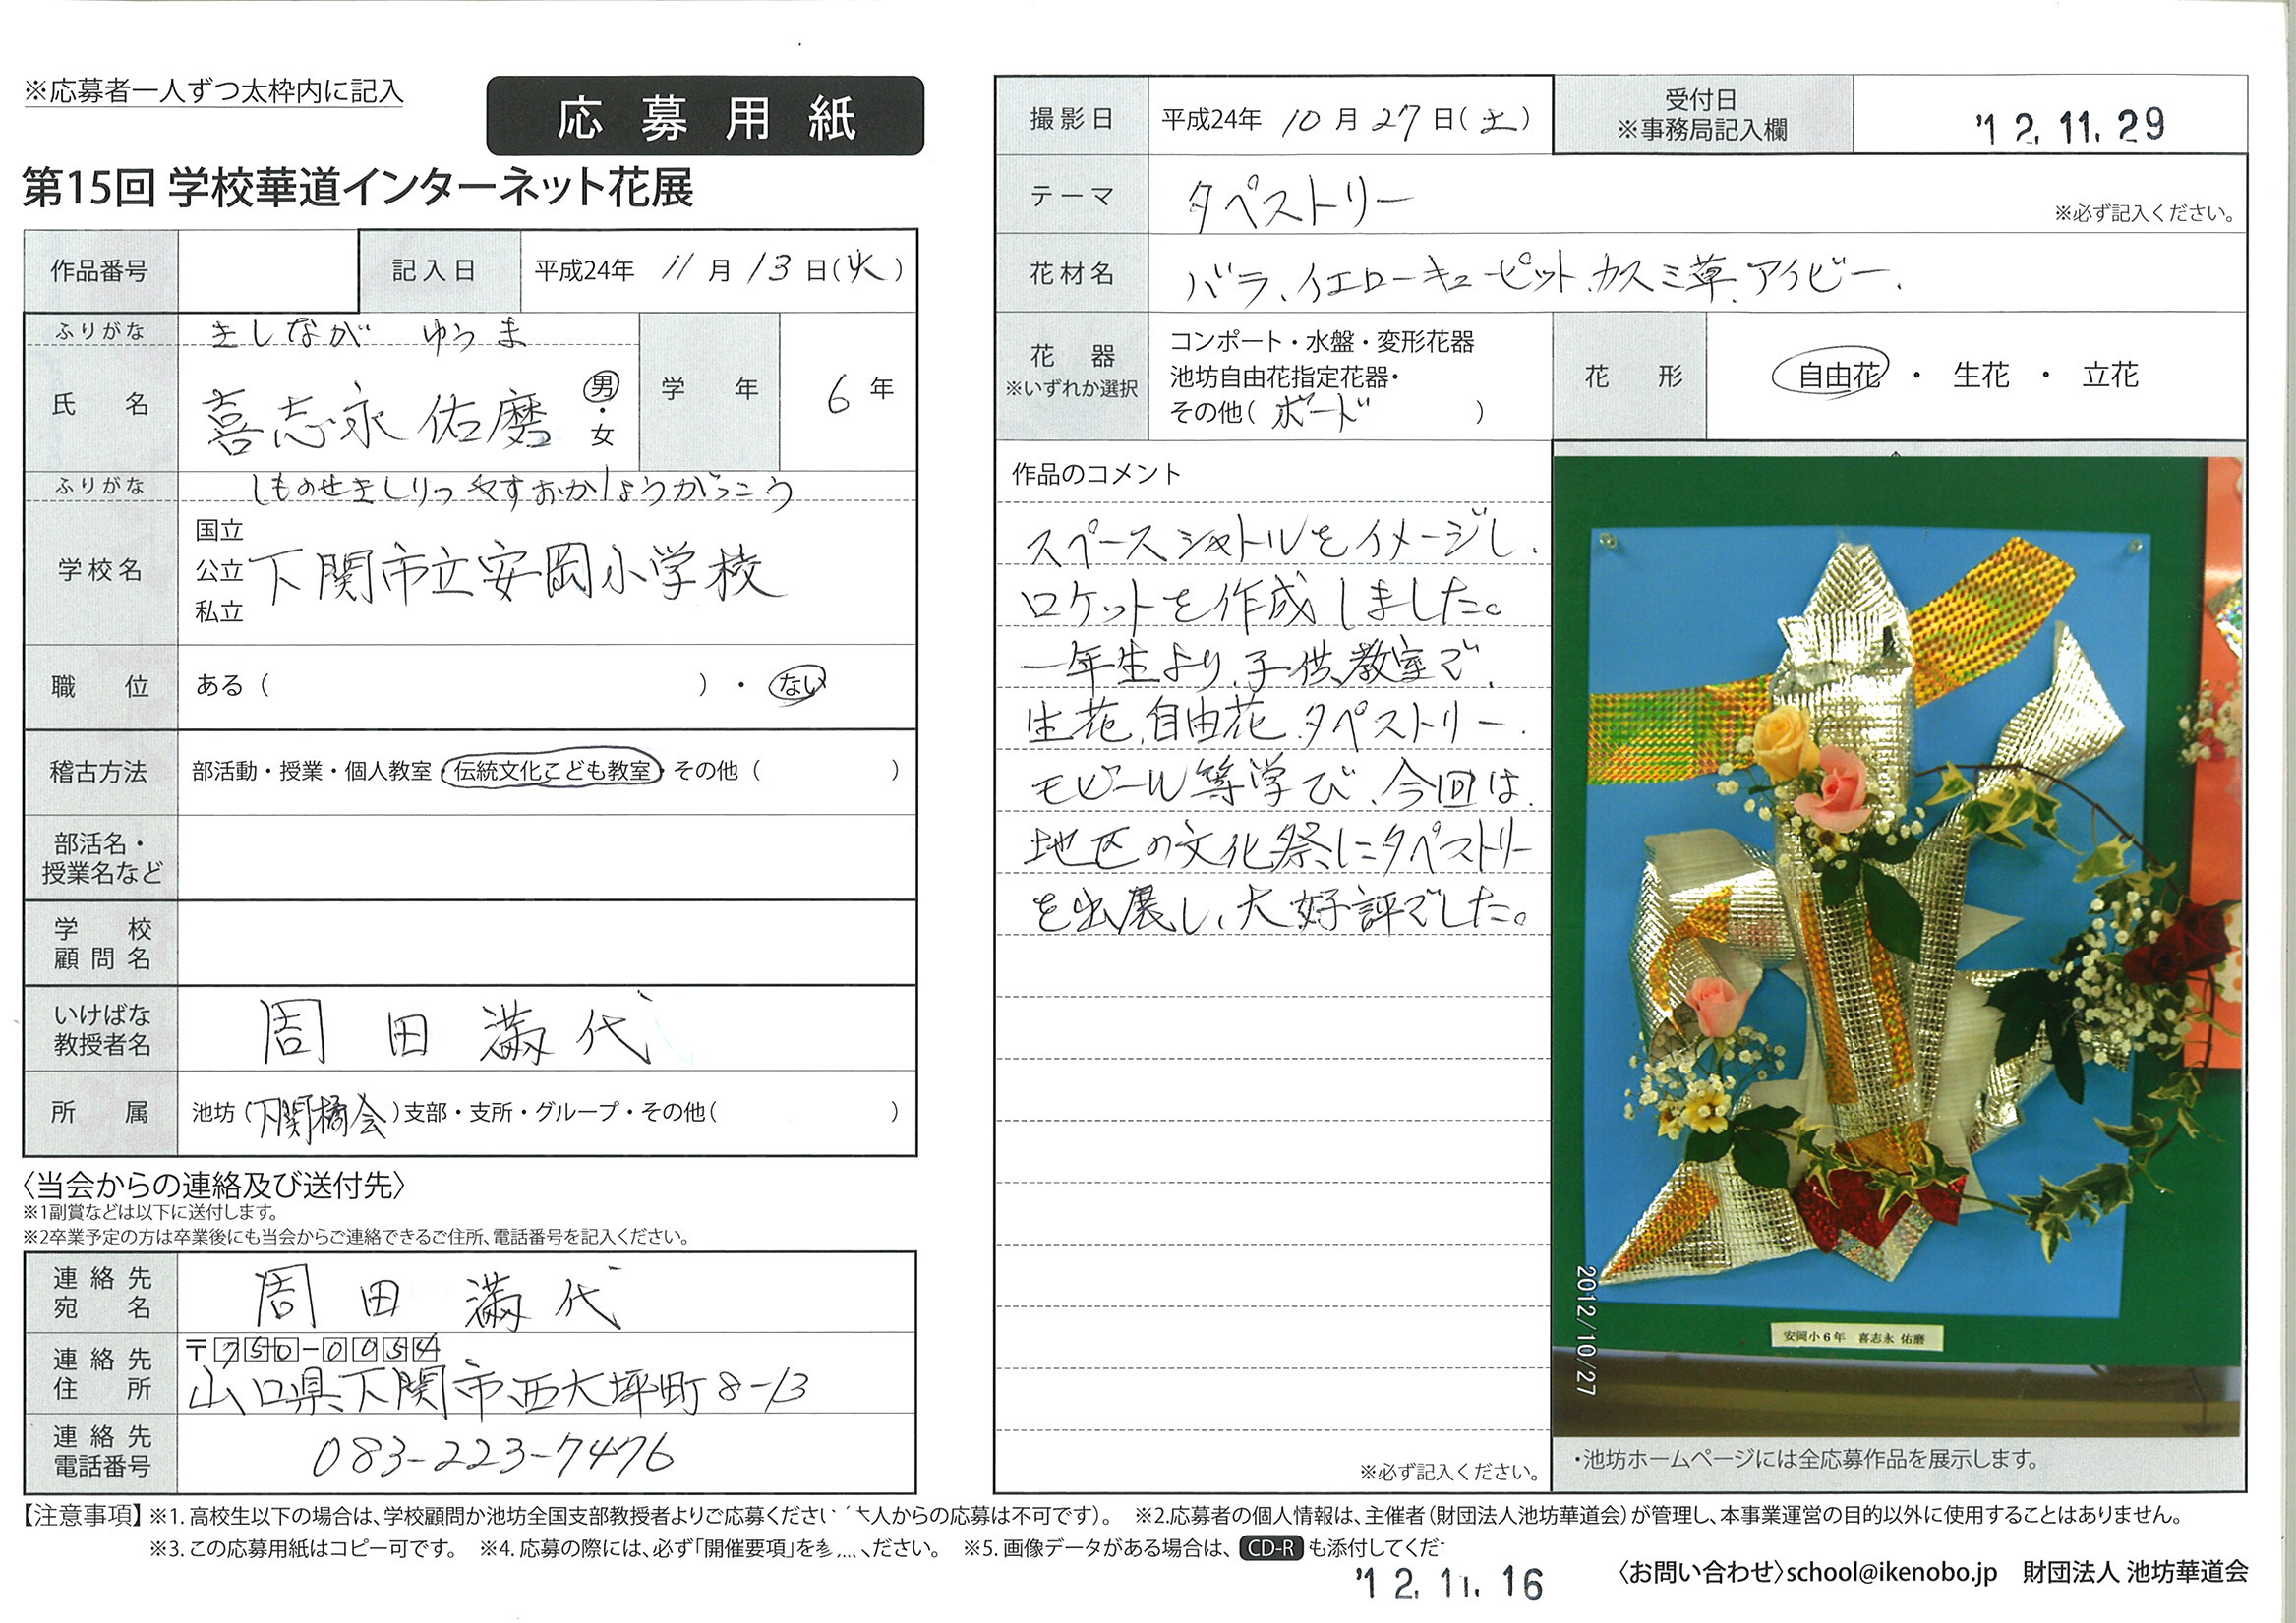 ※応募者一人ずつ太枠内に記入
応募用紙
第15回 学校華道インターネット花展
作品番号
記入日 平成24年 11月 13日(火)
ふりがな きしなが ゆうま
氏名 喜志永 佑磨 男・女 学年 6年
ふりがな しものせきしりつ やすおかしょうがっこう
学校名 国立 公立 私立 下関市立安岡小学校
職位 ある( )・ない
稽古方法 部活動・授業・個人教室・伝統文化こども教室・その他( )
部活名・授業名など
学校顧問名
いけばな教授者名 周田 満代
所属 池坊(下関橘会)支部・支所・グループ・その他( )
〈当会からの連絡及び送付先〉
※1副賞などは以下に送付します。
※2卒業予定の方は卒業後にも当会からご連絡できるご住所、電話番号を記入ください。
連絡先宛名 周田 満代
連絡先住所 〒750-0954
山口県下関市西大坪町8-13
連絡先電話番号 083-223-7476
撮影日 平成24年 10月 27日(土)
受付日 ※事務局記入欄 '12.11.29
テーマ タペストリー ※必ず記入ください。
花材名 バラ、イエローキューピット、カスミ草、アイビー、
花器 ※いずれか選択 コンポート・水盤・変形花器
池坊自由花指定花器・
その他(ボード )
花形 自由花 ・ 生花 ・ 立花
作品のコメント
スペースシャトルをイメージし、
ロケットを作成しました。
一年生より、子供教室で、
生花、自由花、タペストリー、
モビール等学び、今回は、
地区の文化祭にタペストリー
を出展し、大好評でした。
※必ず記入ください。
安岡小6年 喜志永 佑磨
2012/10/27
・池坊ホームページには全応募作品を展示します。
【注意事項】※1. 高校生以下の場合は、学校顧問か池坊全国支部教授者よりご応募ください 人からの応募は不可です)。 ※2.応募者の個人情報は、主催者(財団法人池坊華道会)が管理し、本事業運営の目的以外に使用することはありません。
※3. この応募用紙はコピー可です。 ※4. 応募の際には、必ず「開催要項」を ください。 ※5. 画像データがある場合は、 CD-R も添付してくだ
'12.11.16
〈お問い合わせ〉school@ikenobo.jp 財団法人 池坊華道会